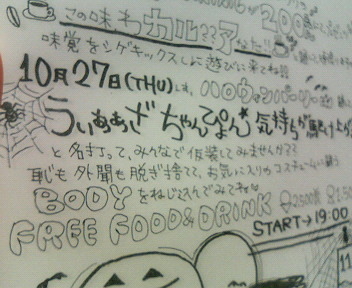 この味わカル??アなた!! 200
味覚をシゲキックスしに遊びに来てね
10月27日(THU)は、ハロウィンパーリー
うぃあぁざちゃんぴょん★気持ちが馳け上が
と名打って、みんなで仮装してみませんか??
恥も外聞も脱ぎ捨てて、お気に入りのコスチュームに
BODYをねじ込んでみてネ ♀2500 ♂
FREE FOOD&DRINK
START→19:00
11